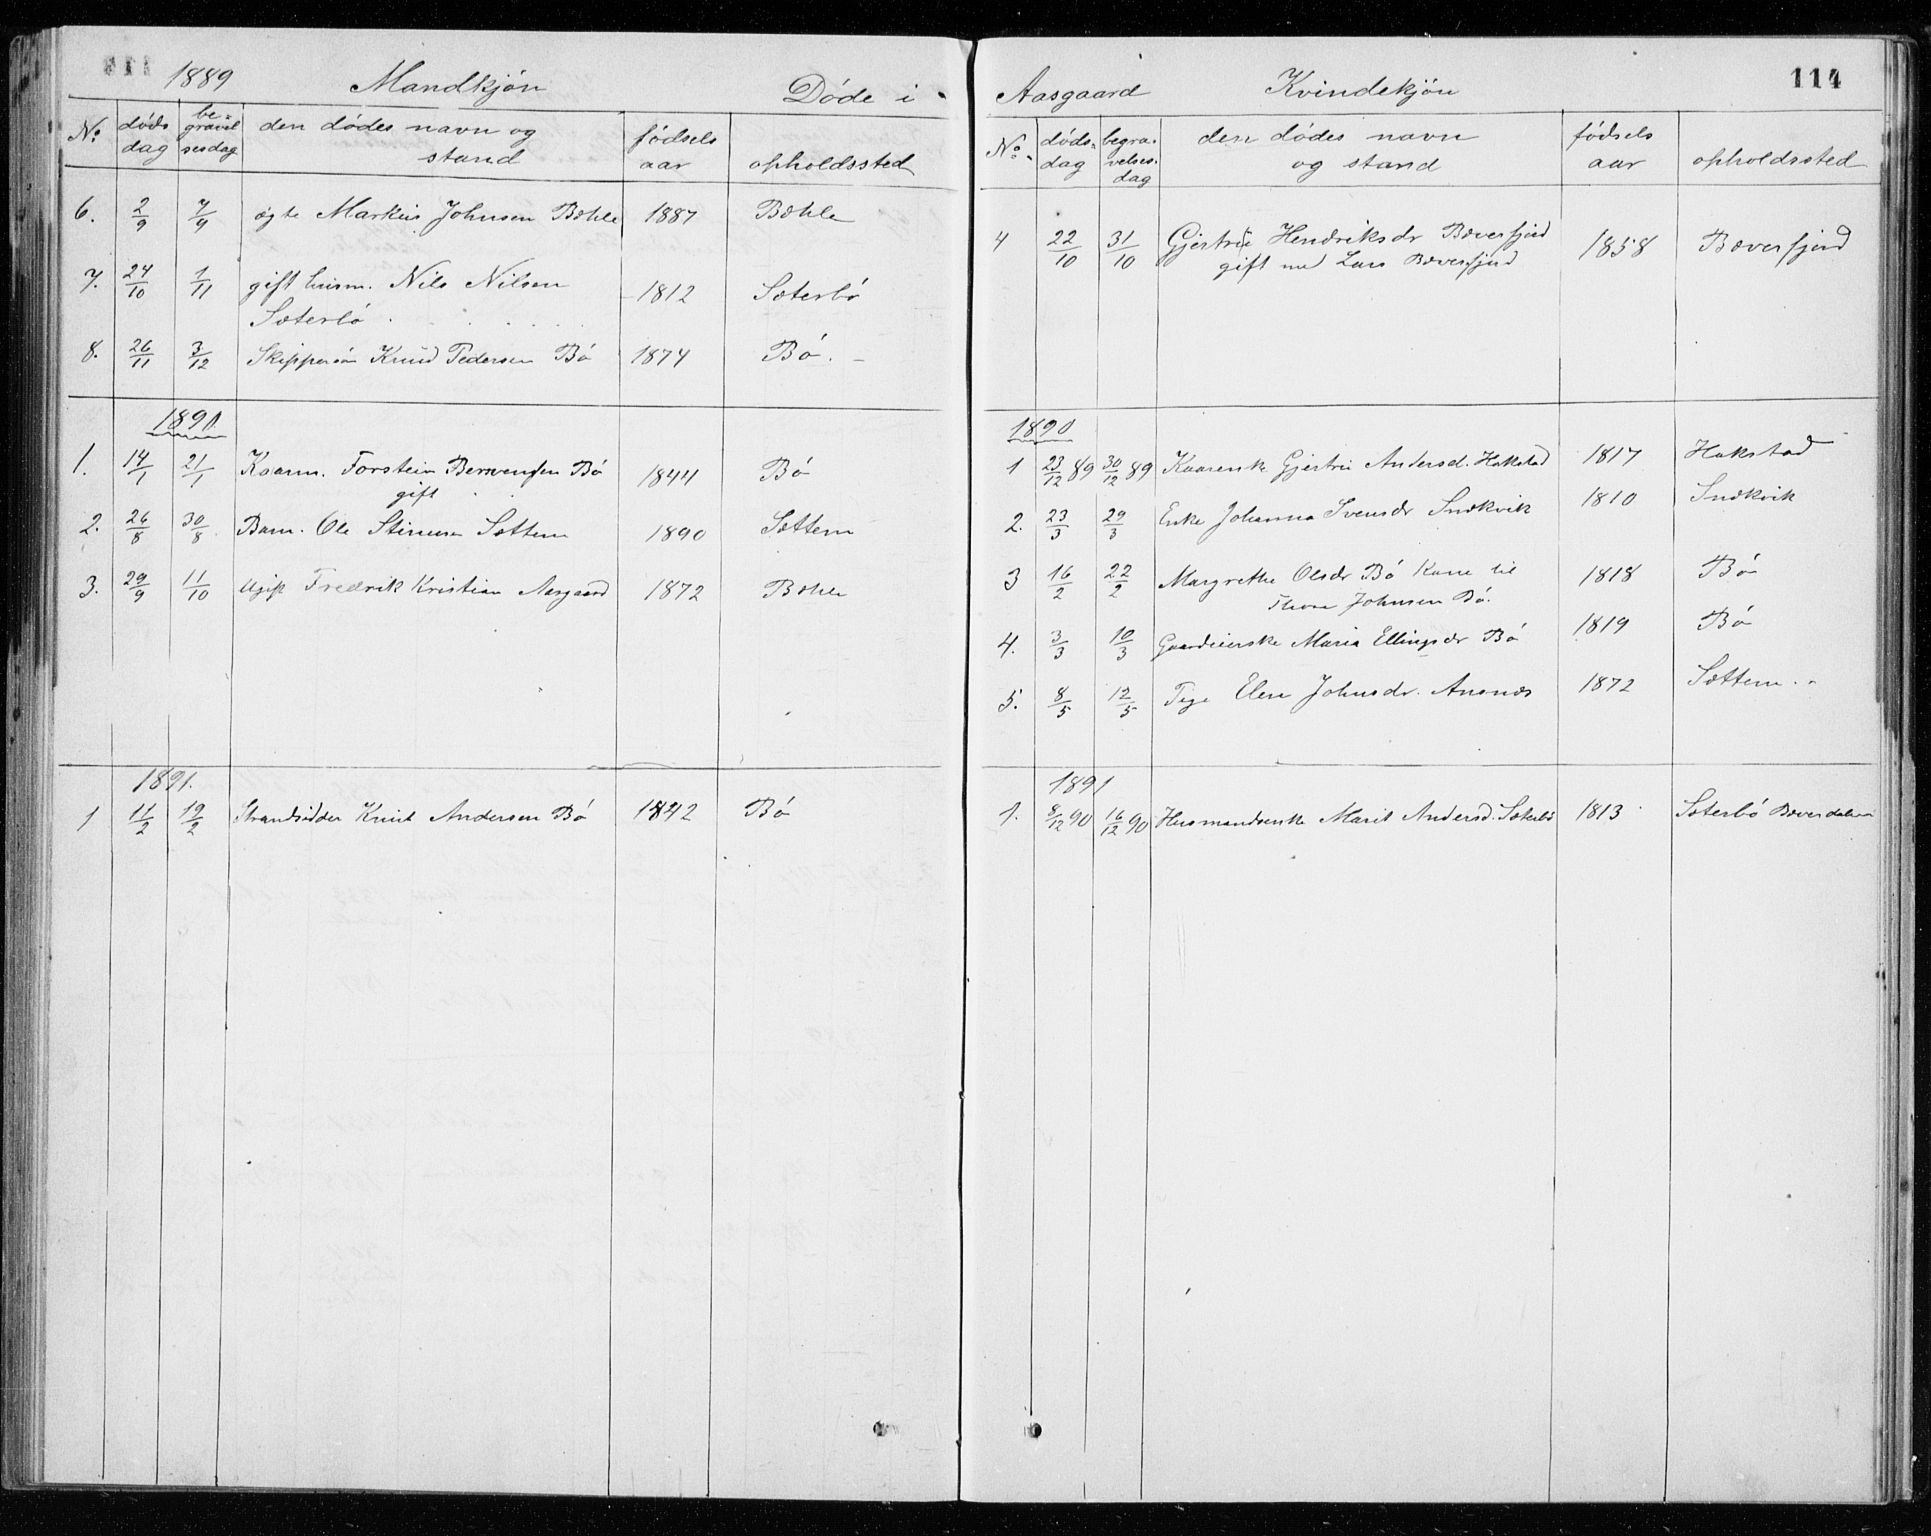 1889 Mandkjøn Døde i
No døds dag be-gravelsesdag den dødes navn og stand fødsels aar opholdssted
6. 2/9 7/9 ægte Markus Johnsen Bæhle 1887 Bæhle
7. 24/10 1/11 gift husm. Nils Nilsen 1812 Sæterbø
Sæterbø
8. 26/11 3/12 Skippersøn Knud Pedersen Bø 1874 Bø
1890
1. 14/1 21/1 Kaarm. Torstein Bø 1844 Bø
gift
2. 26/8 30/8 Barn. Ole Sættem 1890 Sættem
3. 29/9 11/10 Ugift Fredrik Kristian Aasgaard 1872 Bæhle
1891.
1 11/2 19/2 Strandsidder Knut Andersen Bø 1842 Bø
Aasgaard Kvindekjøn 114
No. døds-dag begra-velses-dag den dødes navn og stand fødsels aar opholdssted
4 22/10 31/10 Gjertrud Hendriksdr Bæverfjord 1858 Bæverfjord
gift med Lars Bæverfjord
1890
1 23/12 89 30/12 89 Kaarenke Gjertru Andersd. Hakstad 1817 Hakstad
2. 23/3 29/3 Enke Johanna Svensdr Snekvik 1810 Snekvik
3 16/2 22/2 Margrethe Olsdr Bø Kone til 1818 Bø
Thore Johnsen Bø.
4. 3/3 10/3 Gaardeierske Maria Ellingsdr Bø 1819 Bø
5. 8/5 12/5 Pige Elen Johnsdr. Aasnæs 1872 Sættem
1891
1. 8/12 90 16/12 90 Husmandsenke Marit Andersd. Sæterbø 1813 Sæterbø Bæverdalen